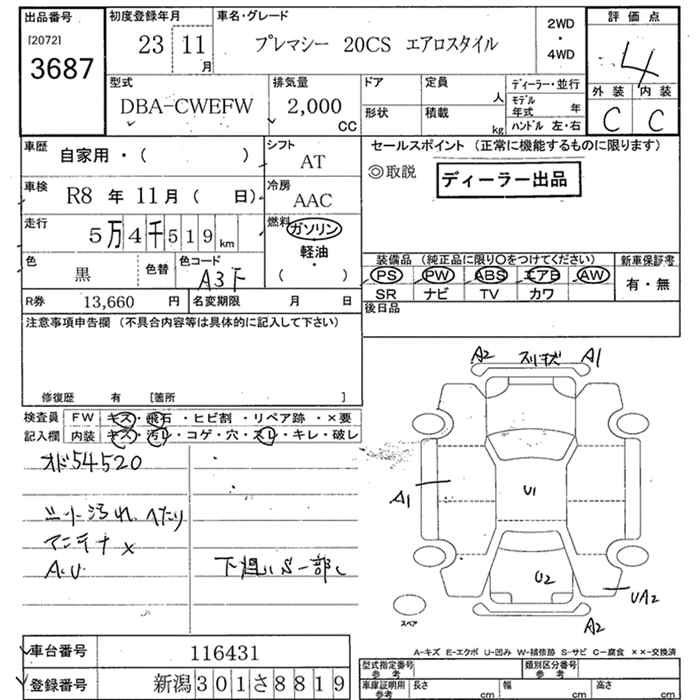 出品番号
[2072]
3687
初度登録年月
23 11月
車名・グレード
プレマシー 20CS エアロスタイル
2WD
・
4WD
評価点
4
外装 内装
C C
型式
DBA-CWEFW
排気量
2,000
CC
ドア
形状
定員
人
積載
kg
ディーラー・並行
モデル年式 年
ハンドル 左・右
車歴
自家用・( )
シフト
AT
車検
R8 年 11月 ( 日)
冷房
AAC
走行
5万4千519km
燃料
ガソリン
軽油
・
( )
色
黒
色替
色コード
A3F
R券
13,660 円
名変期限 月 日
セールスポイント (正常に機能するものに限ります)
◎取説
ディーラー出品
装備品 (純正品に限り○をつけてください)
PS PW ABS エアB AW
SR ナビ TV カワ
新車保証書
有・無
後日品
注意事項申告欄 (不具合内容等は具体的に記入して下さい)
修復歴 有 [箇所 ]
検査員
記入欄
FW キズ・飛石・ヒビ割・リペア跡・×要
内装 キズ・汚レ・コゲ・穴・スレ・キレ・破レ
オド54520
汚れ へたり
アンテナ ×
A.U
下廻りS一部
A2 スリキズ A1
A1
U1
U2
UA2
A2
スペア
A-キズ E-エクボ U-凹み W-補修跡 S-サビ C-腐食 ××-交換済
車台番号
116431
登録番号
新潟301さ8819
型式指定番号
参考
類別区分番号
参考
車庫証明用
参考
長さ cm
幅 cm
高さ cm